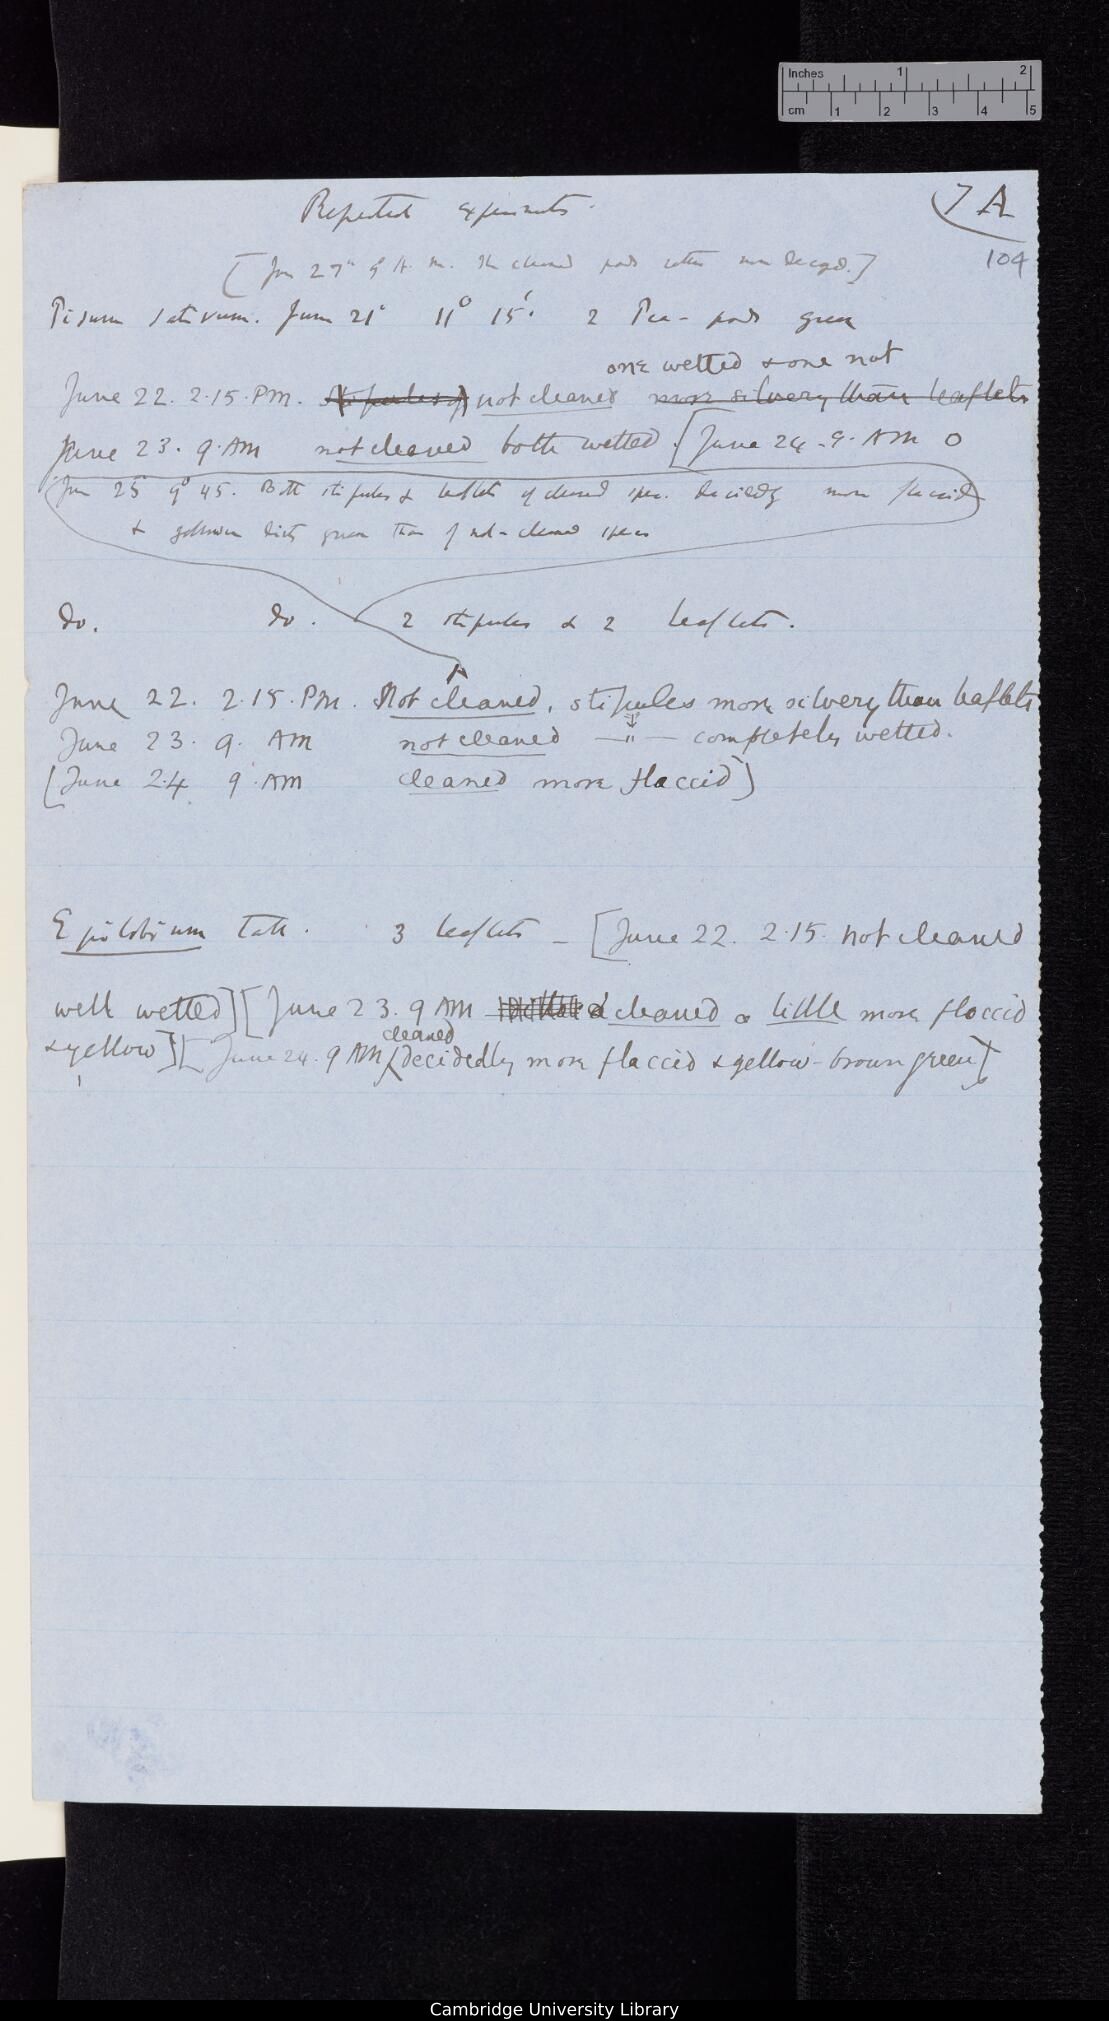 Inches 1 2
cm 1 2 3 4 5
7 A
Repeated experiments.
104
[June 27th 9 A. m. The cleaned pods rather more decayed.]
Pisum sativum. June 21° 11° 15'. 2 Pea-pods green
one wetted & one not
June 22. 2.15. PM. Stipules of not cleaned more silvery than leaflets
June 23. 9. AM not cleaned both wetted. [June 24. 9. AM 0
June 25 9° 45. Both stipules & leaflets of cleaned spec. decidedly more flaccid
& yellower dirty green than of not-cleaned specs
do. do. 2 stipules & 2 leaflets.
June 22. 2.15. PM. Not cleaned, stipules more silvery than leaflets
June 23. 9. AM not cleaned — " — completely wetted.
[June 24 9. AM cleaned more flaccid]
Epilobium tall. 3 leaflets — [June 22. 2.15. not cleaned
well wetted] [June 23. 9 AM cleaned a little more flaccid
cleaned
& yellow] [June 24. 9 AM decidedly more flaccid & yellow-brown green]
Cambridge University Library